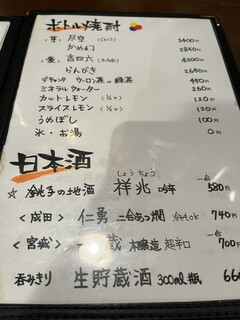 ボトル焼酎
(芋) 尽空 3400円
かめ幻 2850円
(麦) 吉四六
らんびき 3200円
デキャンタ ウーロン茶 緑茶 450円
ミネラルウォーター 260円
カットレモン 120円
スライスレモン 120円
うめぼし 100円
氷・お湯 0円
日本酒
しょうちょう
☆ 銚子の地酒 祥兆 吟年 一合 580円
<成田> 仁勇 二合あっ燗 740円
<宮城> 一 蔵 本醸造 超辛口 一合 700円
呑みきり 生貯蔵酒 300ml瓶 66